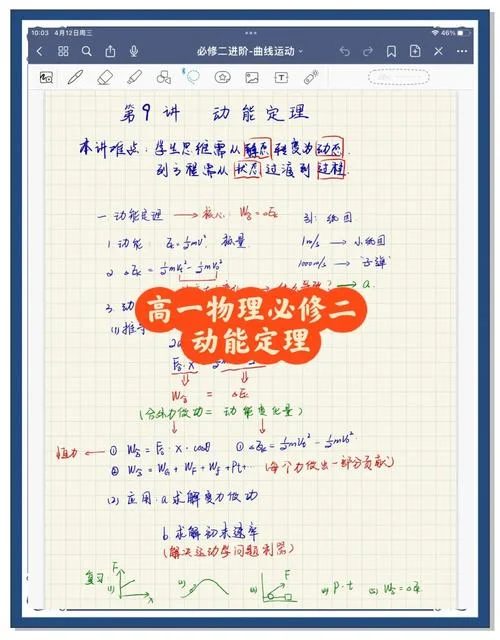 10:03 4月12日周三
46%
必修二进阶-曲线运动
第9讲 动能定理
本讲难点：学生思维需从静态转变为动态.
列方程需从状态过渡到过程.
一 动能定理 → 核心：W合=ΔEk
引：纸团
1. 动能：Ek=½mv² 标量
1m/s → 小纸团
2. ΔEk=½mVt²-½mV0²
1000m/s → 子弹
→ a.
3. 动
高一物理必修二
动能定理
(1) 推导
F合·X
W合 = ΔEk
(合外力做功 = 动能变化量)
恒力 ← ① W合=F合·X·cosθ ① ΔEk=½mVt²-½mV0²
② W合=WG+WF+Wf+Pt… (每个力做出一部分贡献)
(2) 应用：a 求解变力做功
b. 求解初末速率
(解决运动学问题利器)
复习：
F
x
(1)
F
(4) P·t
(5) W合=ΔEk